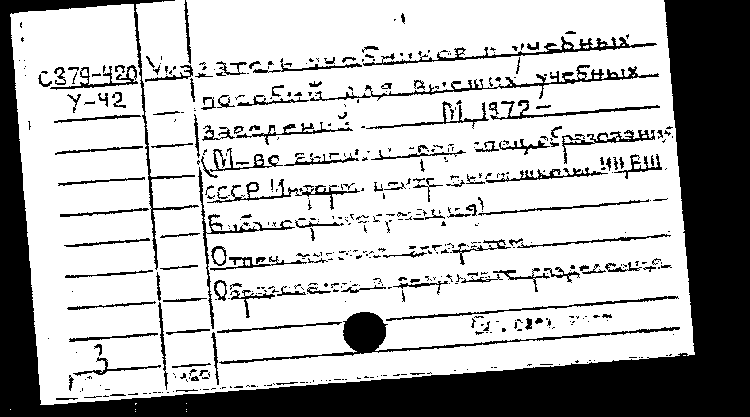 С379-420 Указатель учебников и учебных
У-42 пособий для высших учебных
заведений. М., 1972-
(М-во высш. и сред. спец. образования
СССР. Информ. центр высш. школы. НИИВШ
Библиогр. информация)
Отпеч. множит. аппаратом
Образовался в результате разделения
3